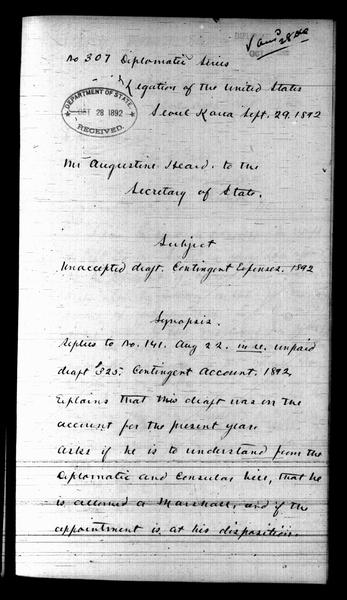 Ans'd 28 Dec
No 307 Diplomatic Series
Legation of the United States
Seoul Korea Sept. 29. 1892
DEPARTMENT OF STATE
OCT 28 1892
RECEIVED.
Mr Augustine Heard. to the
Secretary of State.
Subject
Unaccepted draft. Contingent Expenses. 1892
Synopsis.
Replies to No. 141. Aug 22. in re. unpaid
draft £325. Contingent Account. 1892,
Explains that this draft was on the
account for the present year.
Asks if he is to understand from the
Diplomatic and Consular bill, that he
is allowed a Marshall, and if the
appointment is at his disposition.